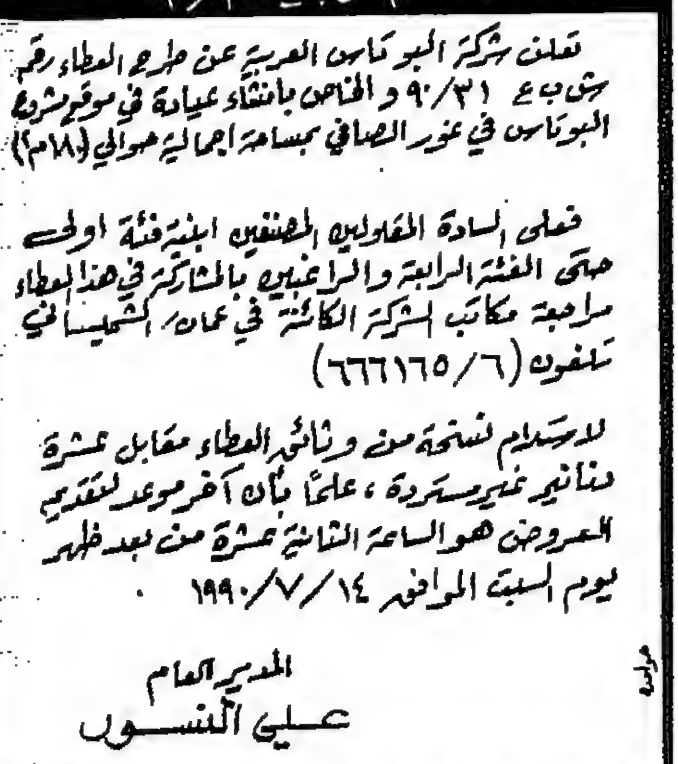 تعلن شركة البوتاس العربية عن طرح العطاء رقم
ش ب ع ٩٠/٣١ والخاص بانشاء عيادة في موقع مشروع
البوتاس في غور الصافي بمساحة اجمالية حوالي (١٨٠م٢)
فعلى السادة المقاولين المصنفين ابنية فئة اولى
حتى الفئة الرابعة والراغبين بالمشاركة في هذا العطاء
مراجعة مكاتب الشركة الكائنة في عمان / الشميساني
تلفون (٦٦٦١٦٥/٦)
لاستلام نسخة من وثائق العطاء مقابل عشرة
دنانير غير مستردة ، علماً بأن آخر موعد لتقديم
العروض هو الساعة الثانية عشرة من بعد ظهر
يوم السبت الموافق ١٩٩٠/٧/١٤ .
المدير العام
علي النسور